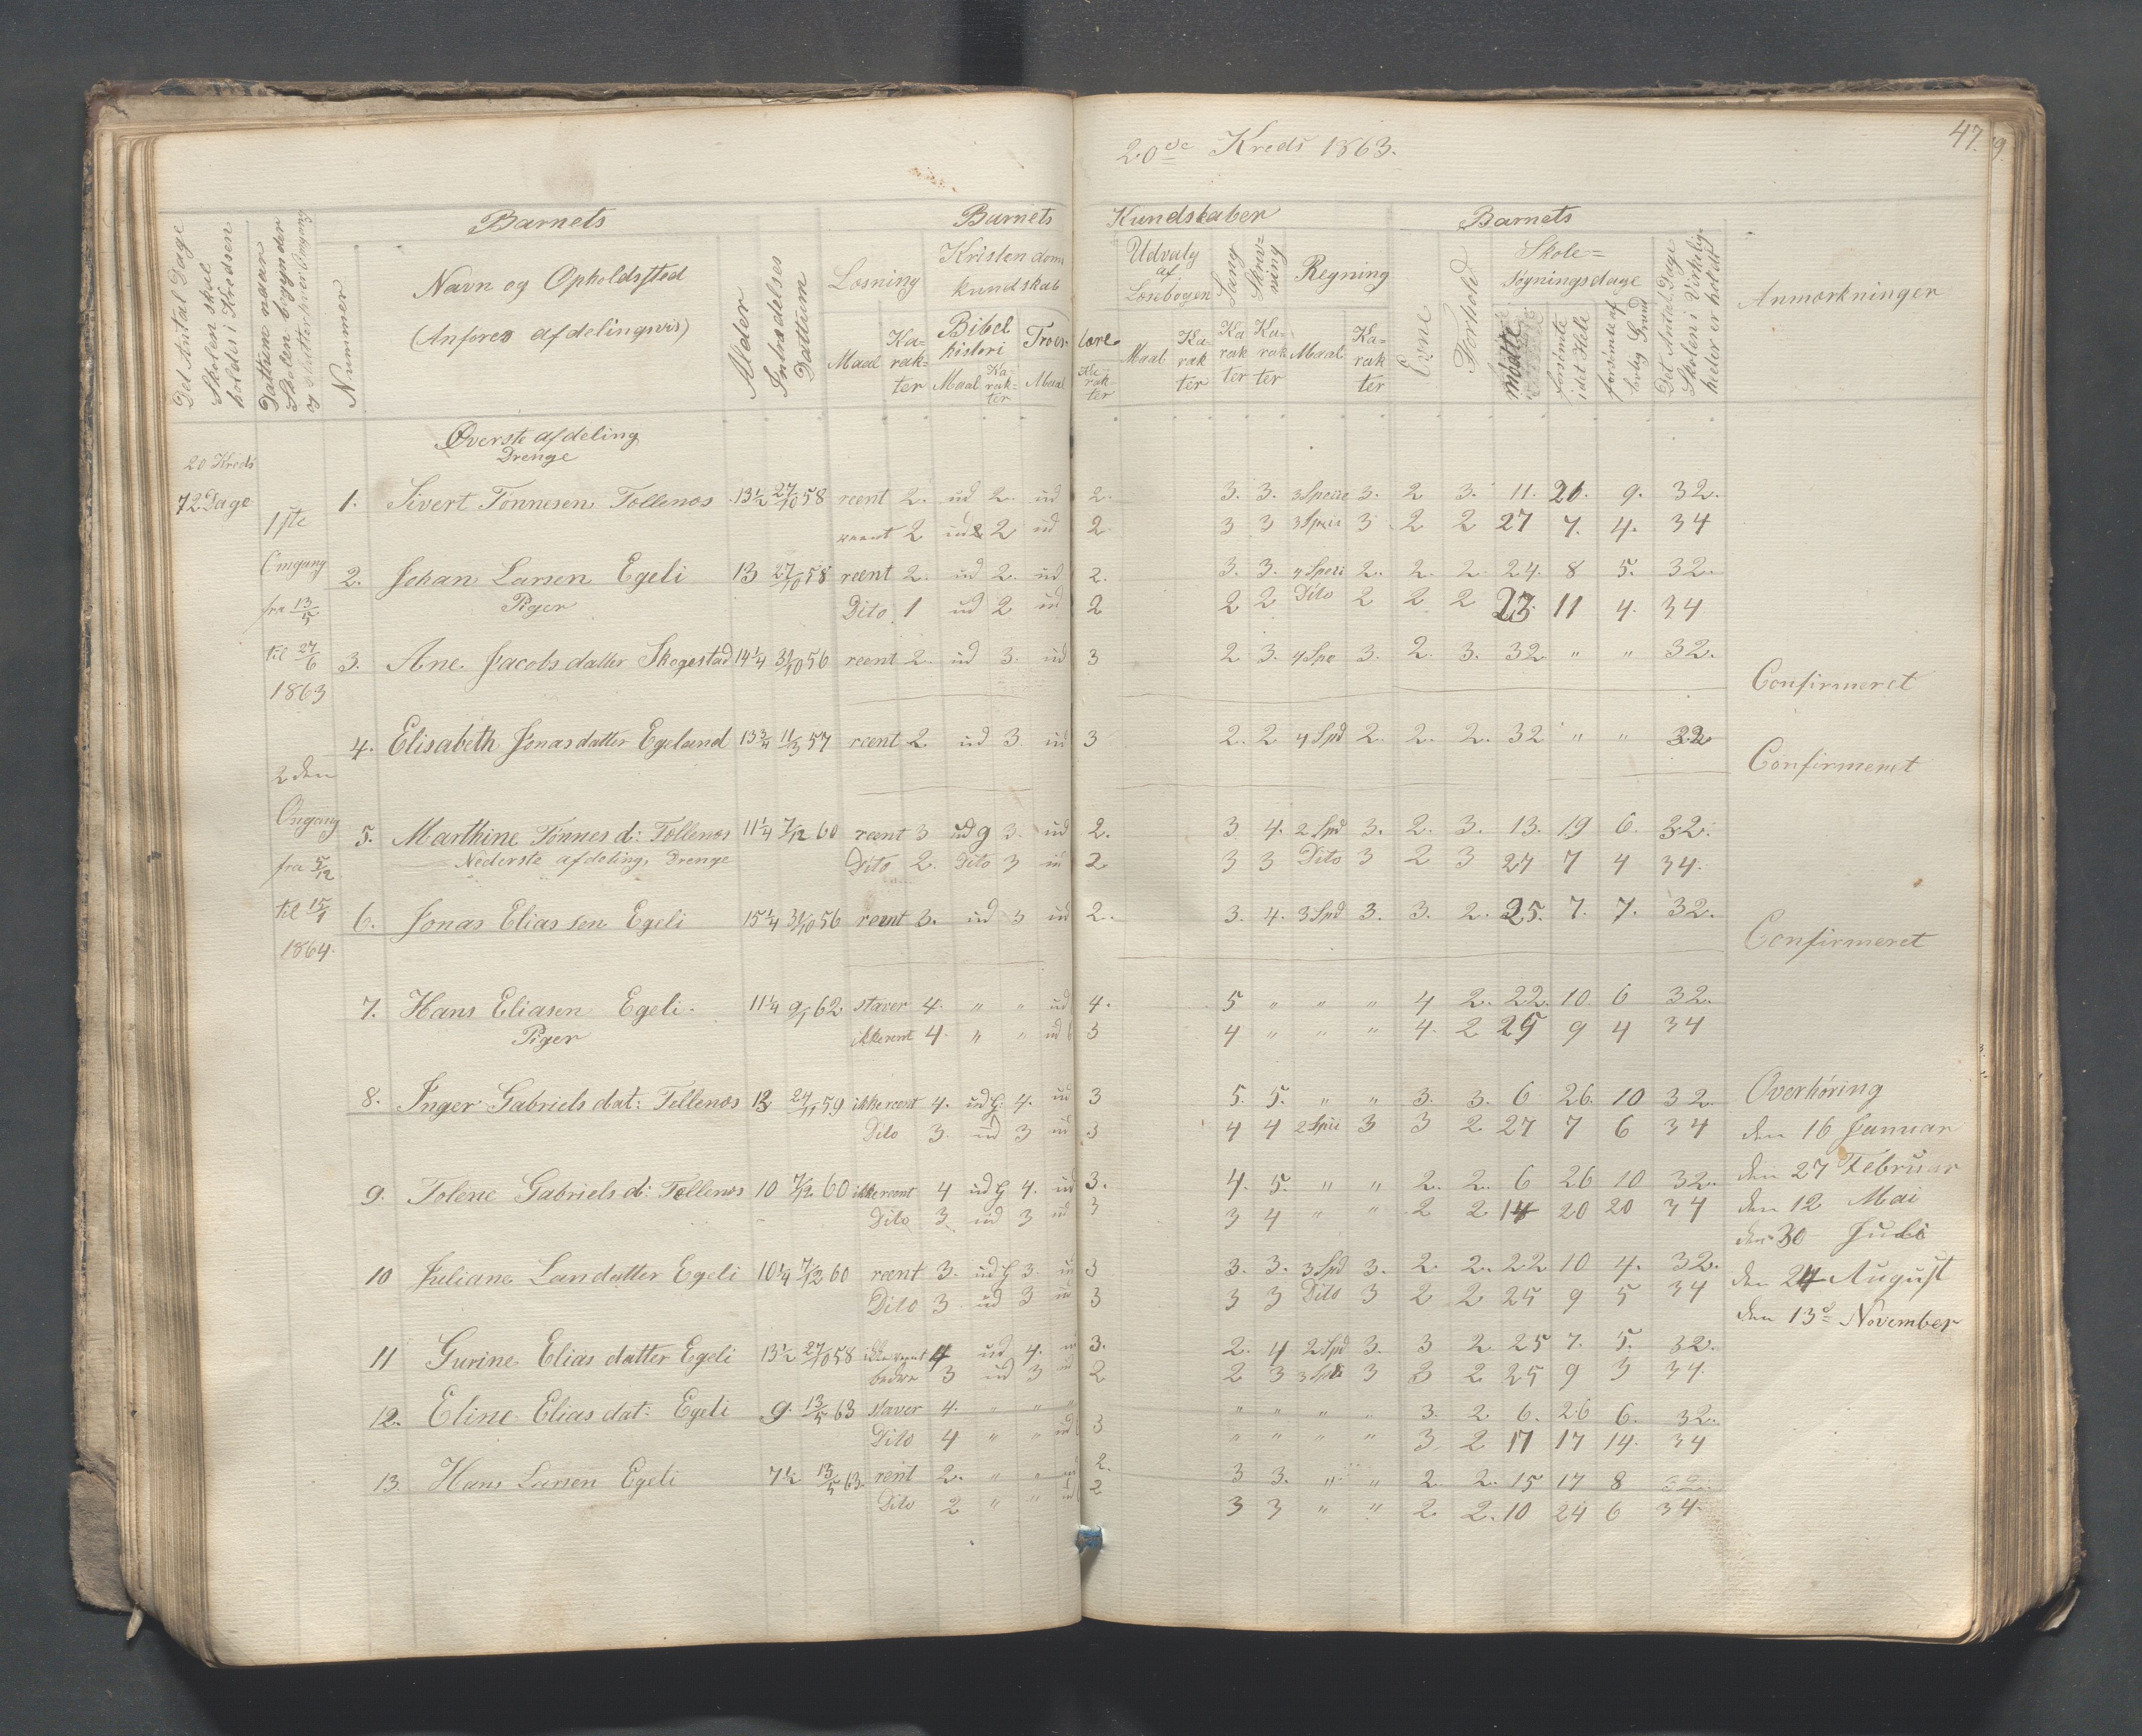 20de Kreds 1863.
47.
9.
Det Antal Dage Skolen skal holdes i Kredsen
Dattum naar Skolen begynder og slutter hver Omgang
Nummer
Barnets
Navn og Opholdssted
(Anføres afdelingsvis)
Alder
Indtrædelses Dattum
Barnets Kundskaber
Læsning
Maal
Ka-rak-ter
Kristendoms kundskab
Bibel histori
Maal
Ka-rak-ter
Troes lære
Maal
Ka-rak-ter
Udvalg af Læsebogen
Maal
Ka-rak-ter
Sang
Ka rak ter
Skriv-ning
Ka-rak ter
Regning
Maal
Ka-rak ter
Barnets
Evne
Forhold
Skole=
søgningsdage
mødte
forsømte i det Hele
forsømte af lovlig Grund
Det Antal Dage Skolen i Virkelig-heden er holdt
Anmærkninger
Øverste afdeling
Drenge
20 Kreds
72 Dage
1ste
Omgang
fra 13/5
til 27/6
1863
2den
Omgang
fra 5/12
til 15/1
1864.
1. Sivert Tønnesen Tollenæs 13½ 27/10 58 reent 2. ud 2. ud 2. 3. 3. 3 Specie 3. 2 3. 11. 21. 9. 32.
reent 2 ud 2 ud 2 3 3 3 Speci 3 2 2 27 7. 4. 34
2. Johan Larsen Egeli 13 27/10 58 reent 2. ud 2. ud 2. 3. 3. 4 Speci 2. 2. 2. 24. 8 5. 32.
Piger Dito 1 ud 2 ud 2 2 2 Dito 2 2 2 23. 11 4. 34
3. Ane Jacobsdatter Skogestad 14¼ 31/10 56 reent 2. ud 3. ud 3 2 3. 4 Spe 3. 2. 3. 32 " " 32.
Confirmeret
4. Elisabeth Jonasdatter Egeland 13¾ 11/3 57 reent 2. ud 3. ud 3 2. 2 4 Spd 2. 2. 2. 32 " " 32
Confirmeret
5. Marthine Tønnes d: Tollenæs 11¼ 7/12 60 reent 3 ud g 3. ud 2. 3 4. 2 Spd 3. 2. 3. 13. 19 6. 32.
Nederste afdeling, Drenge Dito 2. Dito 3 ud 2 3 3 Dito 3 2 3 27 7 4 34.
6. Jonas Eliassen Egeli 15¼ 31/10 56 reent 3. ud 3 ud 2. 3. 4. 3 Spd 3. 3. 2. 25. 7. 7. 32.
Confirmeret
7. Hans Eliasen Egeli. 11¼ 9/1 62 staver 4. " " ud 4. 5 " " " 4 2. 22. 10. 6 32.
Piger ikke reent 4. " " ud 3 4 " " " 4. 2 25 9 4 34
8. Inger Gabriels dat: Tollenæs 12 24/11 59 ikke reent 4. ud G: 4. ud 3 5. 5. " " 3. 3. 6 26. 10 32.
Overhøring
Dito 3. ud 3 ud 3 4 4 2 Speci 3 3 2. 27 7 6 34
den 16 Januar
9. Tolene Gabriels d: Tollenæs 10 7/12 60 ikke reent 4 ud G 4. ud 3. 4. 5. " " 2. 2. 6 26 10 32.
den 27 Februar
Dito 3 ud 3 ud 3 3 4 " " 2 2 14 20 20 34
den 12 Mai
den 30 Juli
10 Juliane Larsdatter Egeli 10¼ 7/12 60 reent 3. ud G 3. ud 3 3. 3. 3 Spd 3. 2. 2. 22 10 4. 32.
den 24 August
Dito 3 ud 3 ud 3 3 3 Dito 3 2 2 25 9 5 34
den 13de November
11 Gurine Elias datter Egeli 13½ 27/10 58 ikke reent 4 ud 4. ud 3. 2. 4 2 Spd 3. 3 2. 25 7. 5. 32.
bedre 3 ud 3 ud 2 2 3 3 Spd 3 3 2 25 9 3 34.
12. Eline Elias dat: Egeli 9. 13/5 63 staver 4. " " " " " " " 3. 2. 6. 26 6. 32.
Dito 4 " " ud 3 " " " " 3 2 17 17 14. 34
13. Hans Larsen Egeli 7½ 13/5 63. rent 2. " " ud 2. 3 3. " " 2. 2. 15 17 8 32.
Dito 2 " " ud 2 3 3 " " 2 2. 10 24 6 34.